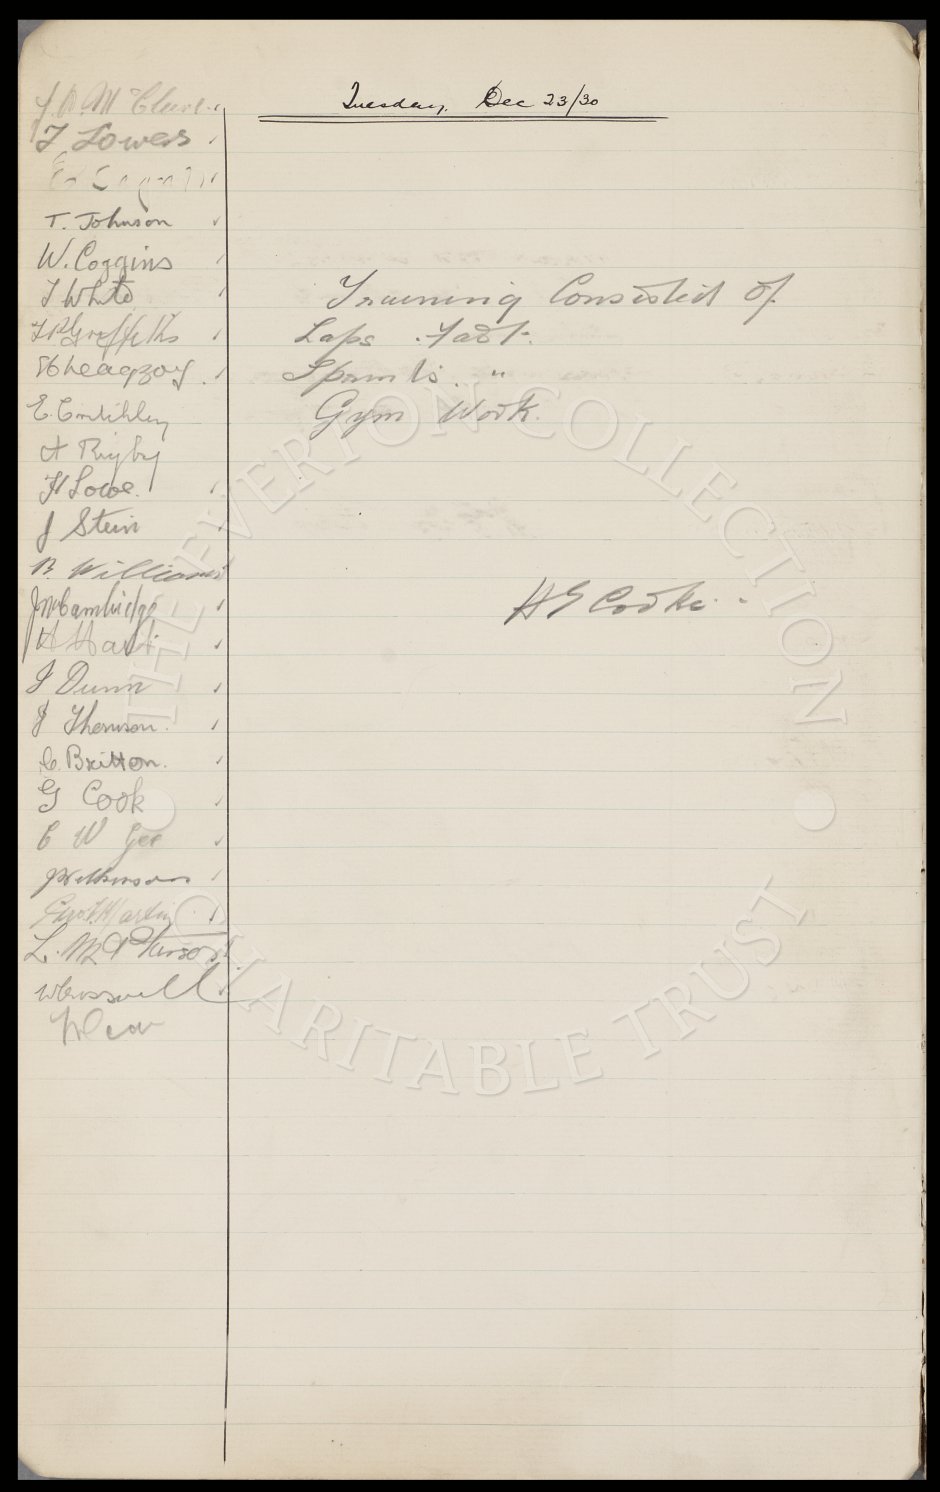 Tuesday, Dec 23/30
J. O. McClure
T Lowers
T. Johnson
W. Coggins
T White
T P Griffiths
E. Critchley
A Rigby
H Lowe.
J Stein
B. Williams
J McCambridge
H Hart
J Dunn
J Thomson.
C. Britton.
G Cook
C W Gee
J Wilkinson
Geo. S. Martin
L. McPherson
W Cresswell
Training Consisted of
Laps. Fast.
Sprints. "
Gym Work.
H E Cooke.
THE EVERTON COLLECTION
CHARITABLE TRUST